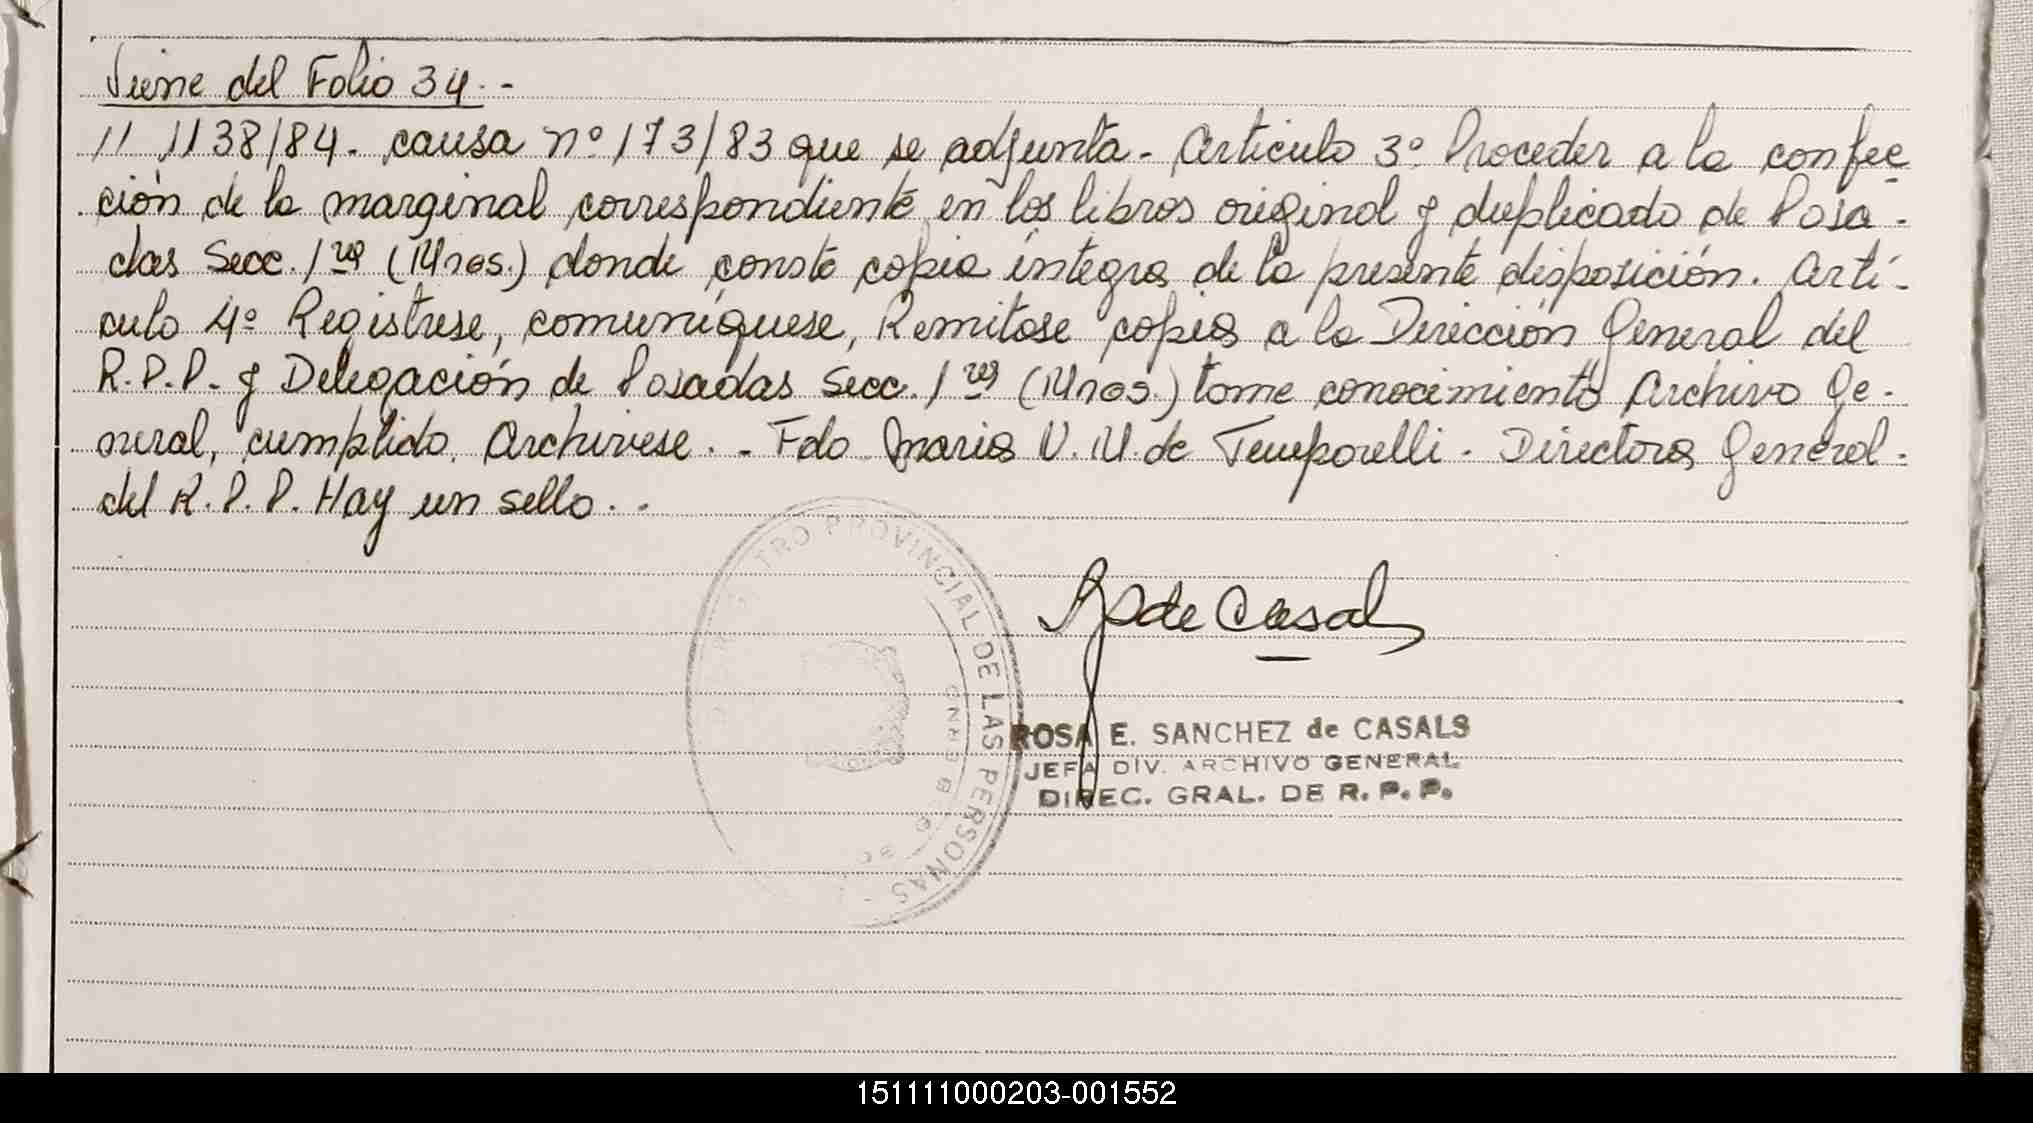 Viene del Folio 34.-
// 1138/84. causa nº 173/83 que se adjunta. Articulo 3º Proceder a la confec
ción de la marginal correspondiente en los libros original y duplicado de Posa-
das Secc. 1ra (Mnes.) donde conste copia integra de la presente disposición. Artí-
culo 4º Registrese, comuníquese, Remitase copia a la Dirección General del
R.P.P. y Delegación de Posadas Secc. 1ra (Mnes.) tome conocimiento Archivo Ge-
neral, cumplido. Archivese. - Fdo Maria V. M. de Temporelli - Directora General.
del R.P.P. Hay un sello. -
TRO PROVINCIAL DE LAS PERSONAS
de Casals
ROSA E. SANCHEZ de CASALS
JEFA DIV. ARCHIVO GENERAL
DIREC. GRAL. DE R. P. P.
151111000203-001552